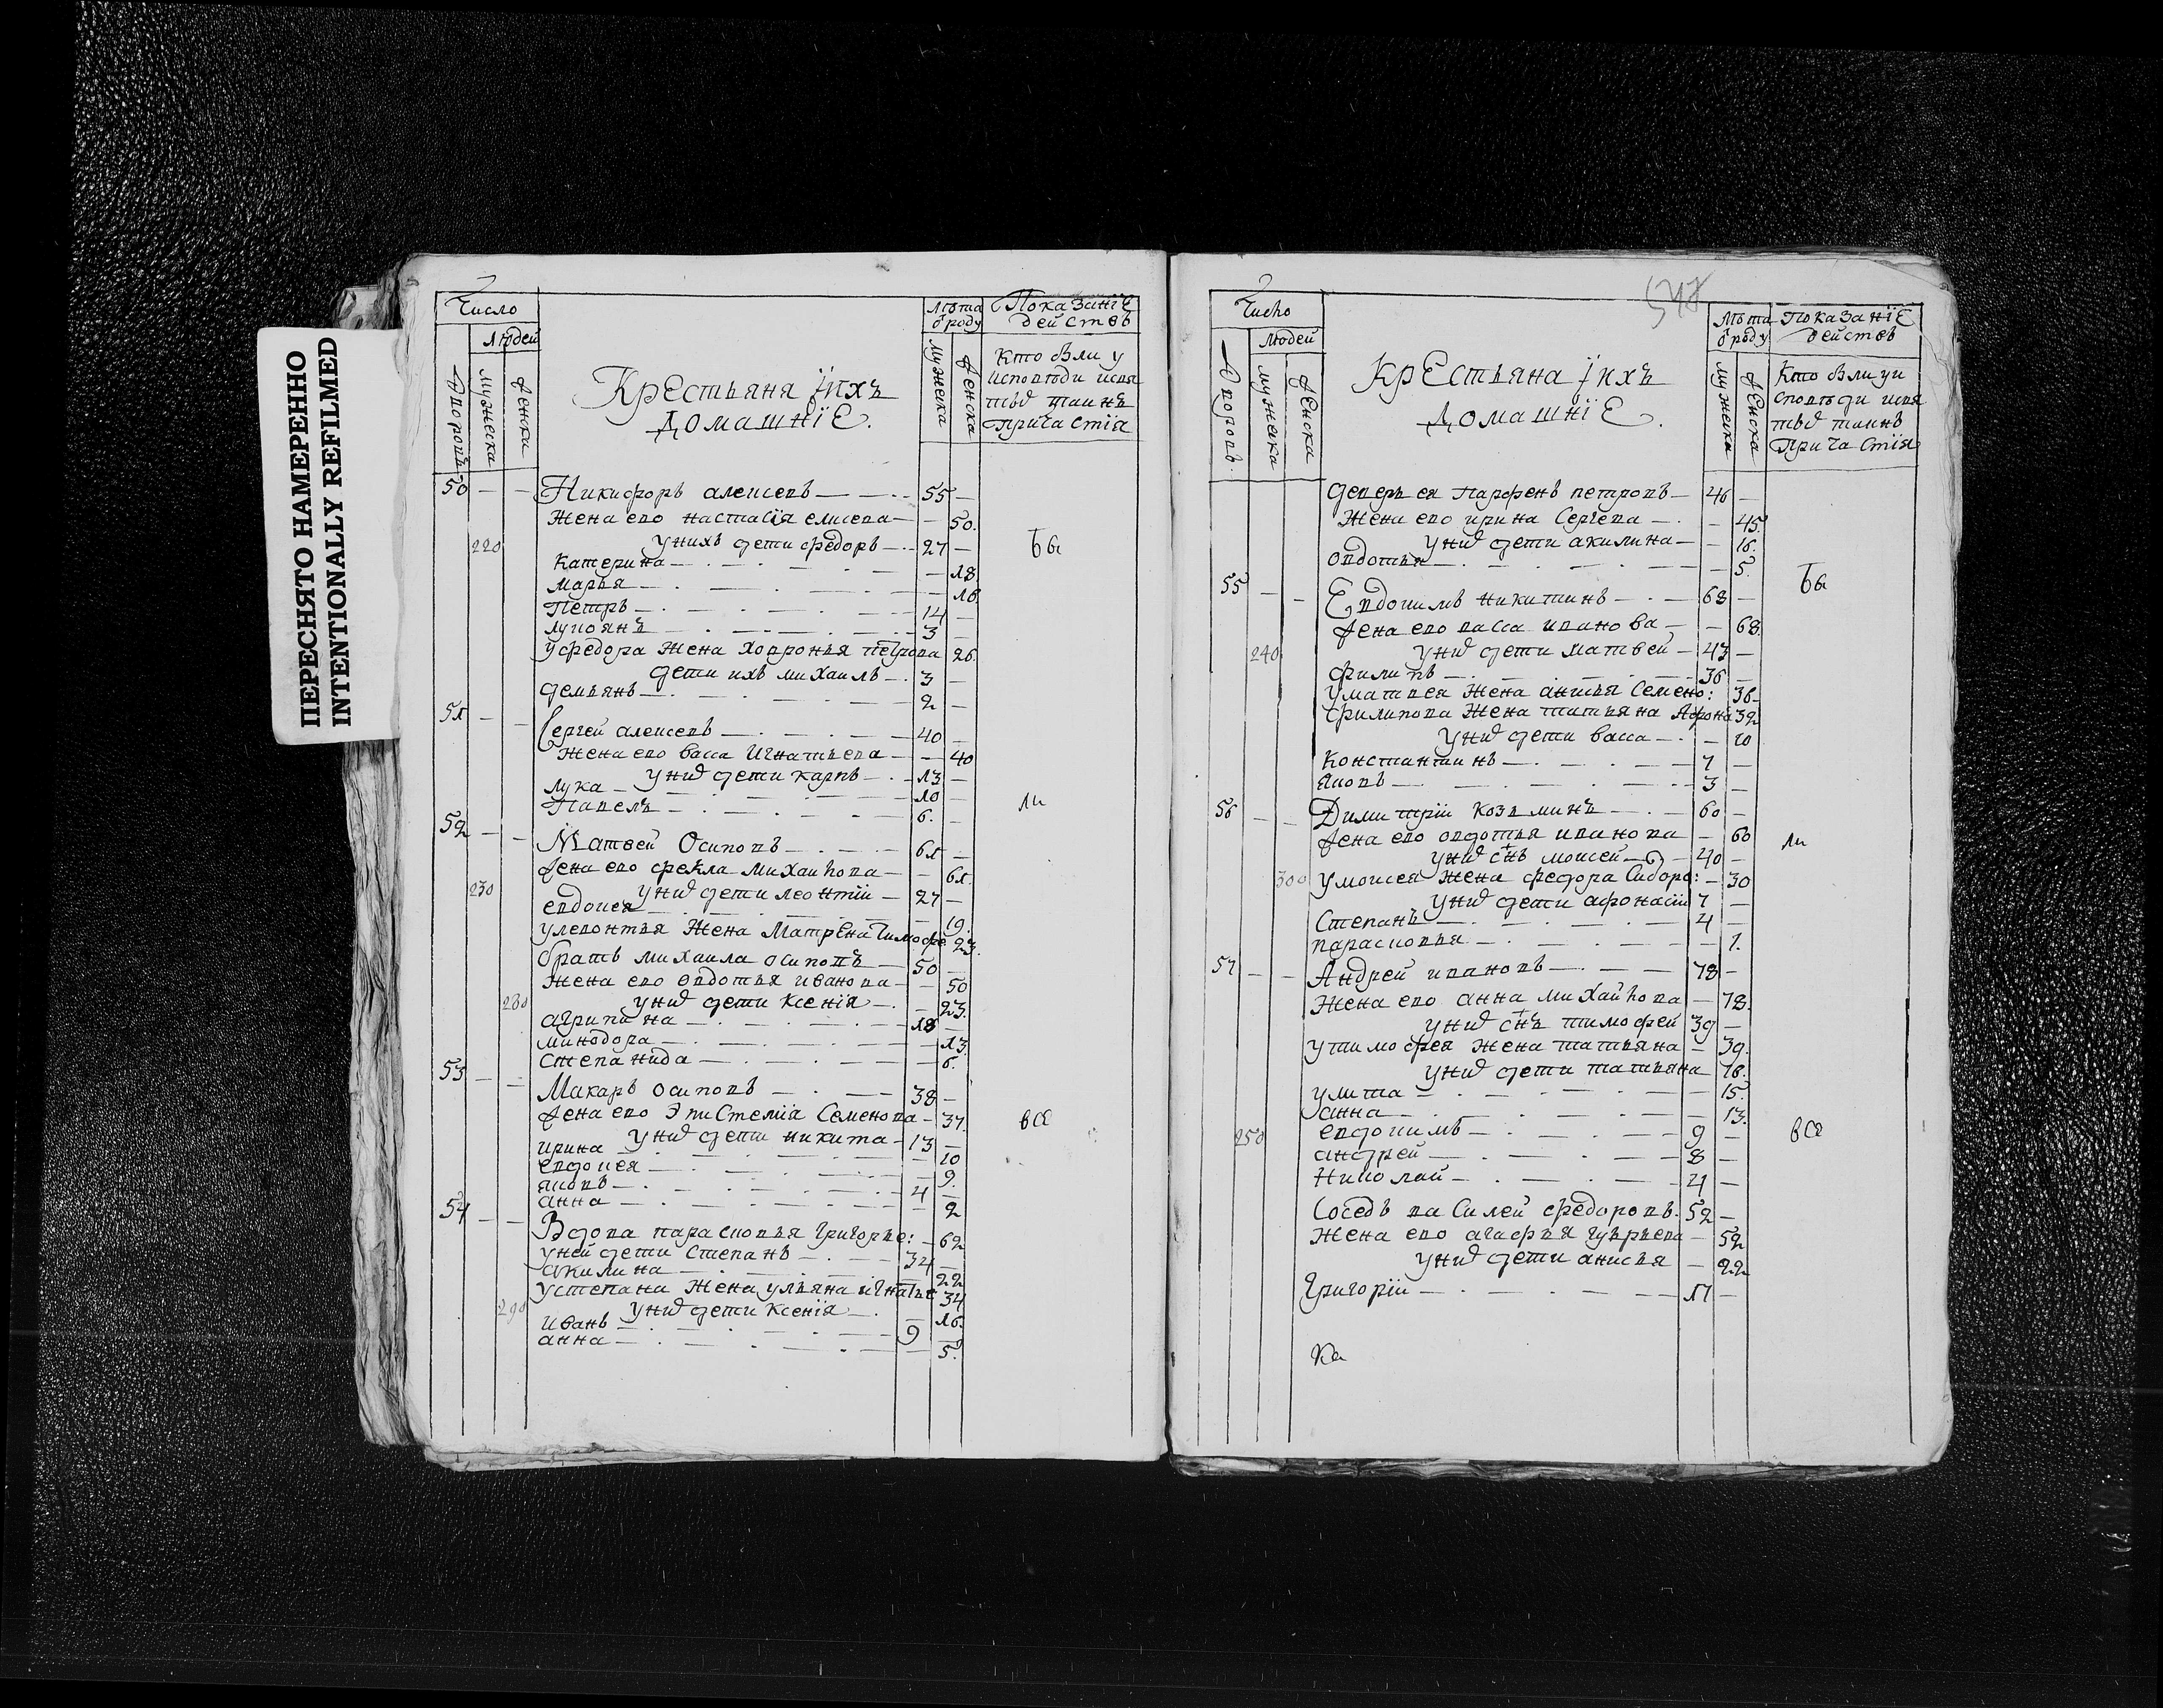 ПЕРЕСНЯТО НАМЕРЕННО
INTENTIONALLY REFILMED
Число
Людей
Дворовъ
Мужеска
Женска
Крестьяня їихъ
Домашнїе.
Лѣта
ѿ роду
Мужеска
Женска
Показанїе
действъ
Кто были у
исповѣди исвя
тыхъ таинъ
причастїя
50 Никифоръ алексевъ 55
Жена ево настасїя елисева 50.
220 Унихъ дети федоръ 27
Катерина 18
Марья 16
Петръ 14
лукоянъ 3
Уфедора Жена ховронья петрова 26.
дети ихъ михаилъ 3
демьянъ 2
Бы
51 Сергей алексевъ 40
Жена ево васса Игнатьева 40
У них дети карпъ 13
лука 10
Павелъ 6.
ли
52 Матвей Осиповъ 61
Жена ево фекла Михайлова 61.
230 У них дети леонтїи 27
евдокея 19.
улевонтья Жена Матрена тимофе 23.
братъ михаила осиповъ 50
Жена ево овдотья иванова 50
280 У них дети ксенїя 23.
агрипина 18
минодора 13
степанида 6.
53 Макаръ осиповъ 38
Жена ево Эпистемїя Семенова 37.
У них дети никита 13
ирина 10
евдокея 9.
яковъ 4
анна 2
все
54 Вдова парасковья григорье: 62
уней дети степанъ 34
акилина 22
Устепана Жена ульяна игнатье 34
290 У них дети ксенїя 16.
иванъ 9
анна 5.
548
Число
Людей
Дворовъ
мужеска
Женска
Крестьяна їихъ
Домашнїе.
Лѣта
ѿ роду
мужеска
Женска
Показанїе
действъ
Кто были уи
споведи исвя
тых таинъ
Причастїя
деверь ея парфенъ петровъ 46
Жена ево ирина Сергева 45.
У них дети акилина 16.
овдотья 5.
Бы
55 Евдокимъ никитинъ 68
Жена ево васса иванова 68.
240 У них дети матвей 43
филипъ 36
Уматвея Жена анисья Семено: 38
филипова Жена татьяна Афона 32
У них дети васса 10
Константинъ 7
яковъ 3
56 Димитрїи козминъ 60
Жена ево овдотья иванова 60
У них сн҃ъ моисей 40
ли
300 Умоисея Жена федора Сидоро: 30
У них дети афонасїи 7
Степанъ 4
парасковья 1.
57 Андрей ивановъ 78
Жена ево анна михайлова 78.
У них сн҃ъ тимофей 39
Утимофея Жена татьяна 39.
У них дети татьяна 18.
улита 15.
анна 13.
250 евдокимъ 9
андрей 8
Николай 4
все
Соседъ василей федоровъ 52
Жена ево агафья гурьева 52
У них дети анисья 22
Григорїи 17
Ка